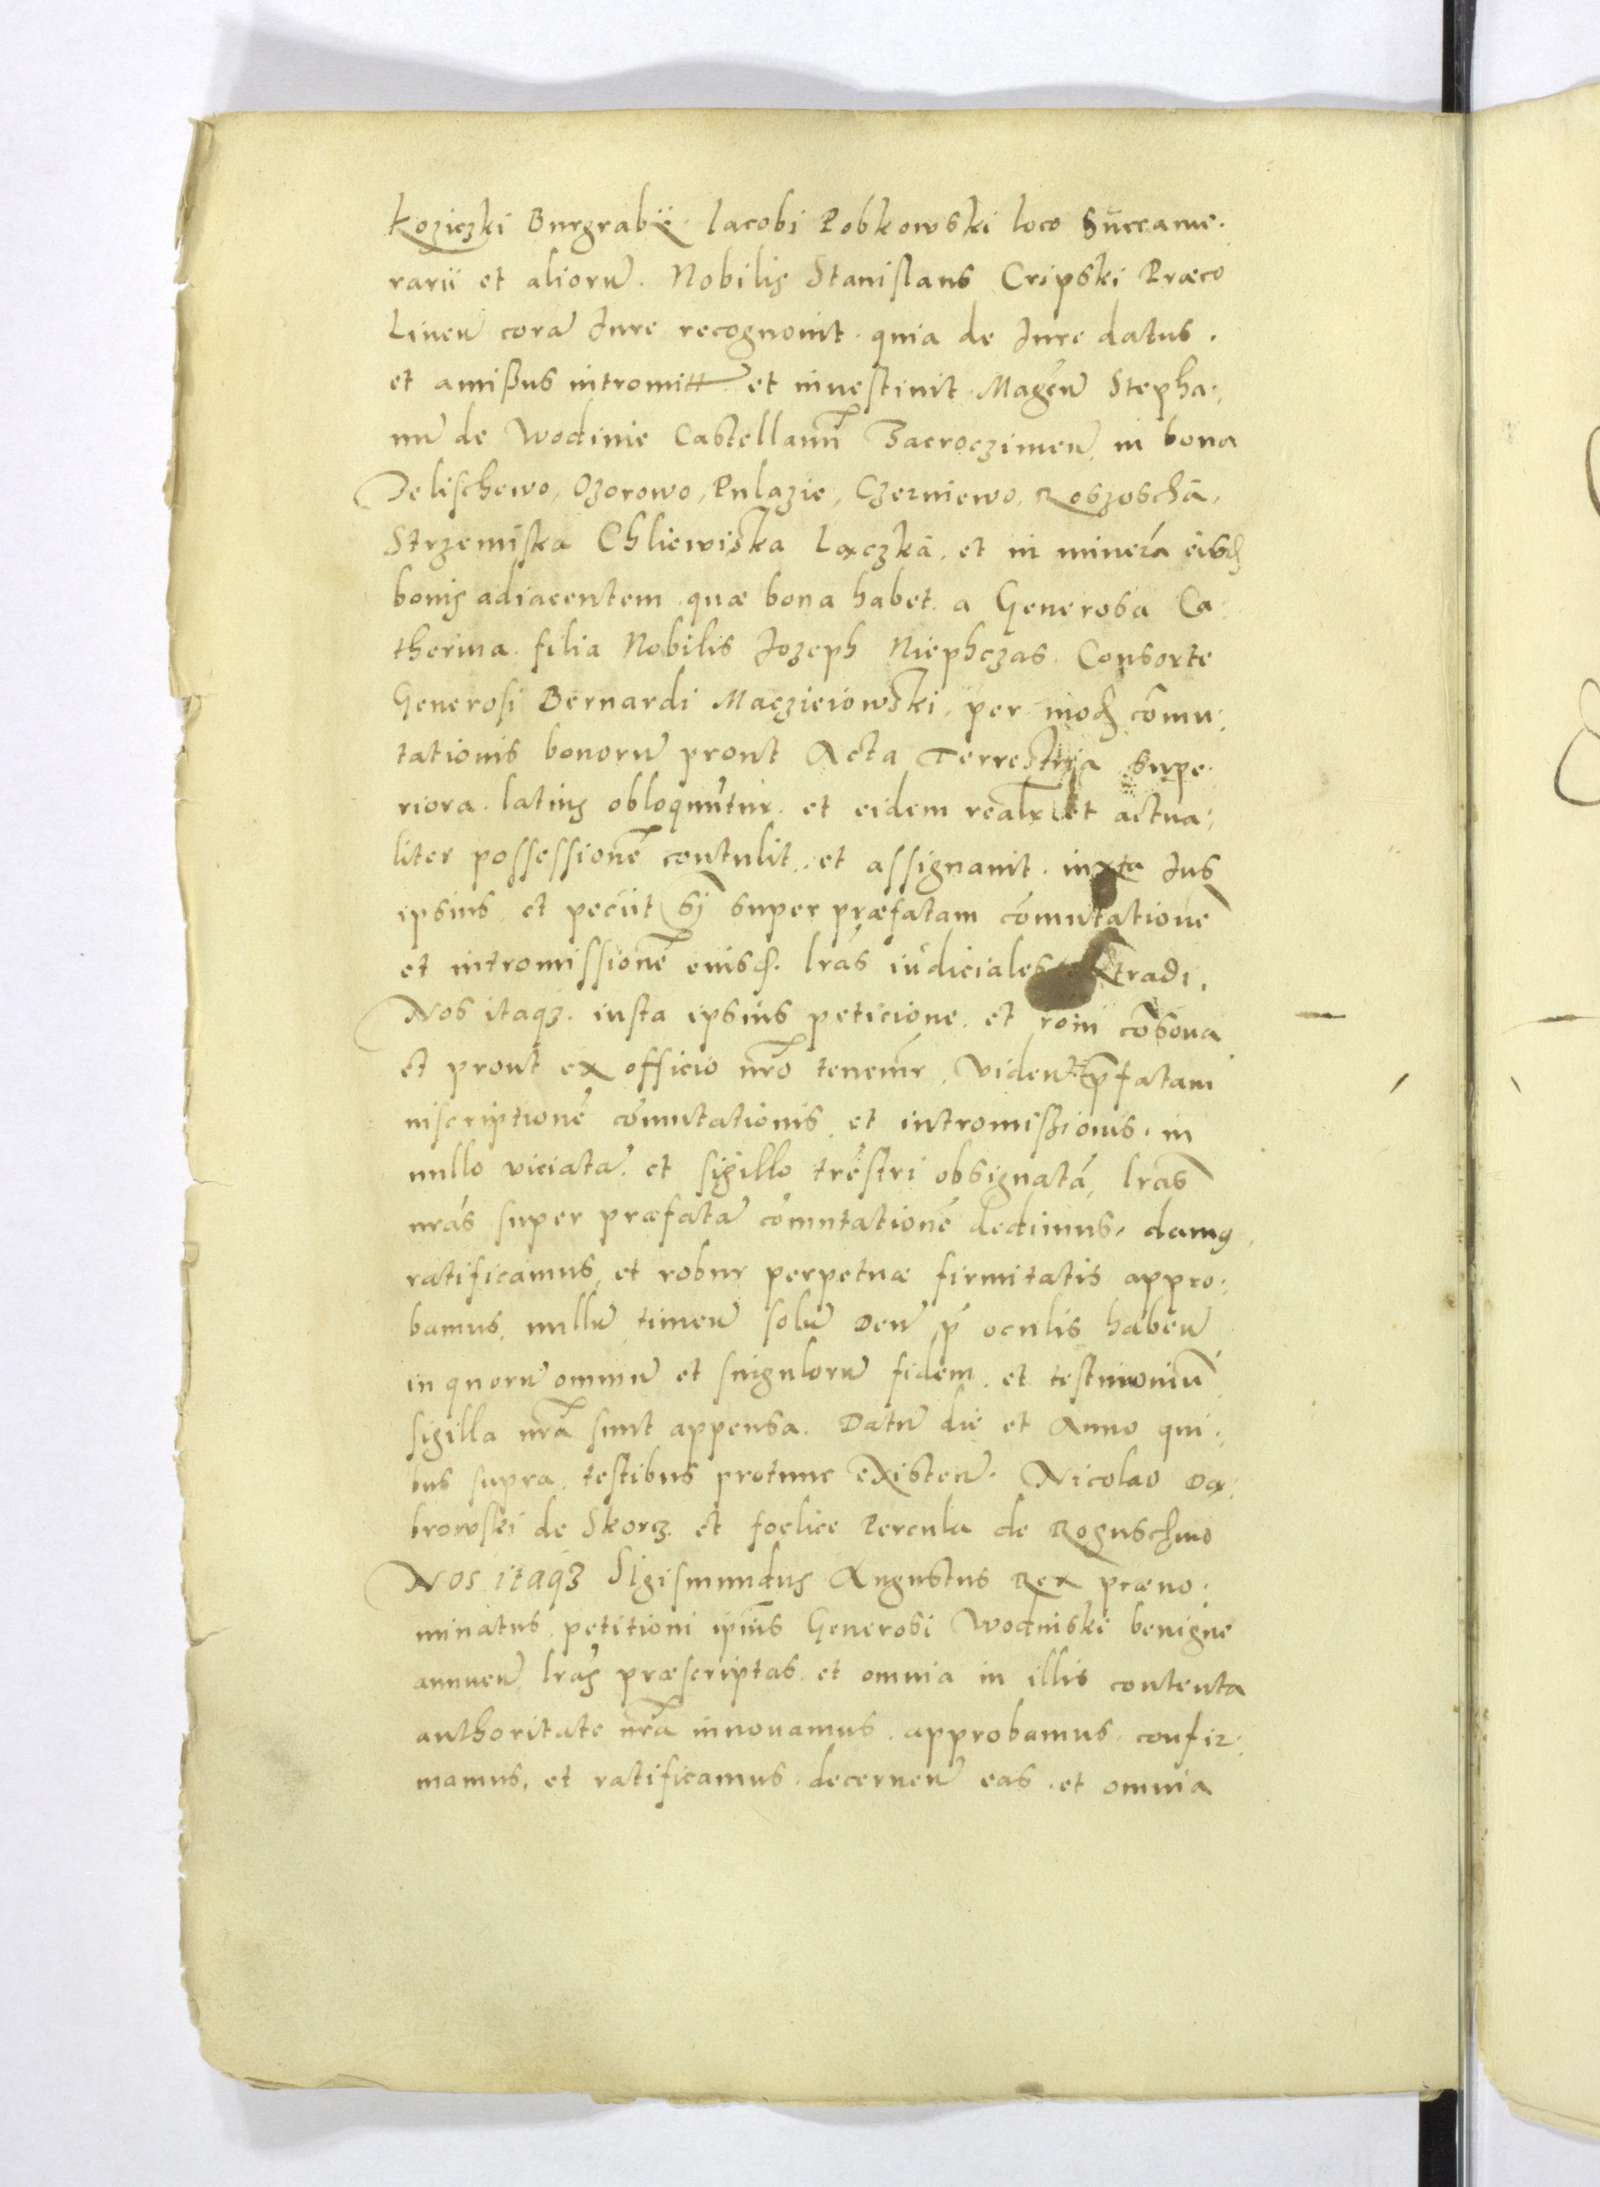 Koziczki Burgrabii Iacobi Pobkowski loco Succame.
rarii et alioru̅. Nobilis Stanislaus Cripski Præco
Liuen̅ cora̅ Iure recognouit. quia de Iure datus.
et amißus intromitt et inuestiuit Mag̅cu̅ Stepha.
nu̅ de Wodinie Castellanu̅ Zacroczimen̅ in bona
Delischewo, Ozorowo, Pulazie, Czerniewo, Roszoscha̅,
Strzemiska Chliewiska Lączka̅. et in minera̅ eisd̅
bonis adiacentem quæ bona habet a Generosa Ca.
therina filia Nobilis Iozeph Niephczas Consorte
Generosi Bernardi Maczieiowski, per mod̅ com̅u.
tationis bonoru̅ prout Acta Terrestria supe.
riora. latius obloquu̅tur. et eidem realr̅ et actua.
liter possessione̅ contulit. et assignauit. iuxta Ius
ipsius et peciit sj super præfatam com̅utatione̅
et intromissione̅ eiusd̅. lr̅as iudiciales extradi,
Nos itaq3. iusta ipsius peticione. et ro̅ni co̅sona
et prout ex officio nr̅o tenem̅r, viden̅t p̅fatam
inscriptione̅ com̅utationis et intromißionis. in
nullo viciata̅. et sigillo tre̅stri obsignata̅, lr̅as
nr̅as super præfata̅ com̅utatione̅ dedimus, damꝰ,
ratificamus, et robur perpetuæ firmitatis appro.
bamus, nullu̅ timen̅ solu̅ Deu̅ p̅ oculis haben̅
in quoru̅ omniu̅ et singuloru̅ fidem. et testimoniu̅
sigilla nr̅a sunt appensa. Datu̅ die et Anno qui.
bus supra. testibus protunc existen̅. Nicolao Dą.
browski de Skorcz. et foelice Percula de Roguschino
Nos itaq3 Sigismundus Augustus Rex præno.
minatus. petitioni ip̅ius Generosi Wodinski benigne
annuen̅ lr̅as præscriptas et omnia in illis contenta
authoritate nr̅a innouamus. approbamus. confir.
mamus. et ratificamus. decernen̅ eas. et omnia